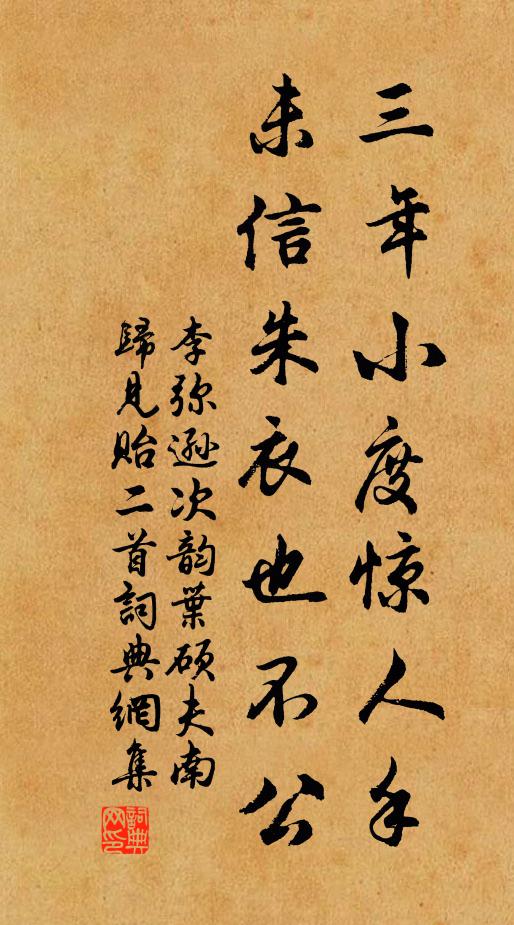 三年小度惊人手
未信朱衣也不公
李弥逊次韵葉硕夫南
歸見贻二首詞典網集
詞典
网印